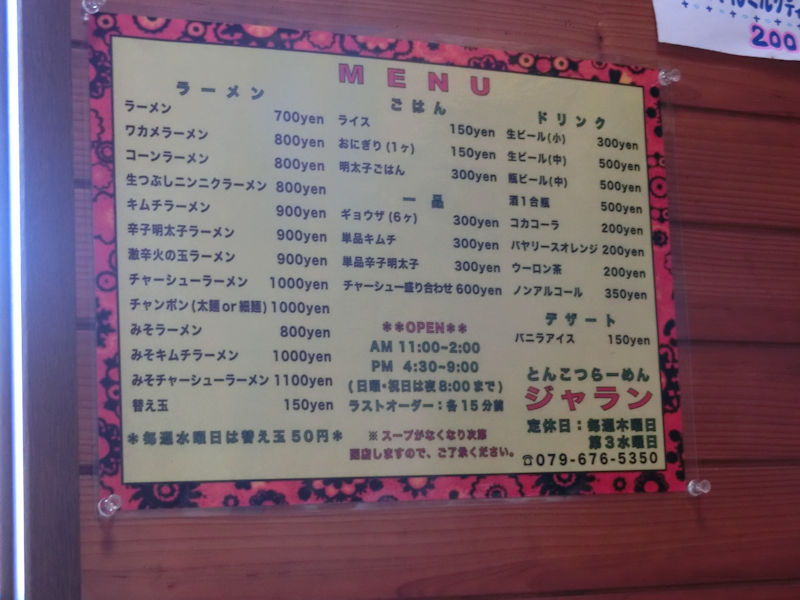 MENU
ラーメン
ラーメン 700yen
ワカメラーメン 800yen
コーンラーメン 800yen
生つぶしニンニクラーメン 800yen
キムチラーメン 900yen
辛子明太子ラーメン 900yen
激辛火の玉ラーメン 900yen
チャーシューラーメン 1000yen
チャンポン(太麺or細麺) 1000yen
みそラーメン 800yen
みそキムチラーメン 1000yen
みそチャーシューラーメン 1100yen
替え玉 150yen
*毎週水曜日は替え玉50円*
ごはん
ライス 150yen
おにぎり(1ヶ) 150yen
明太子ごはん 300yen
一品
ギョウザ(6ヶ) 300yen
単品キムチ 300yen
単品辛子明太子 300yen
チャーシュー盛り合わせ 600yen
**OPEN**
AM 11:00~2:00
PM 4:30~9:00
(日曜・祝日は夜8:00まで)
ラストオーダー:各15分前
※スープがなくなり次第
閉店しますので、ご了承ください。
ドリンク
生ビール(小) 300yen
生ビール(中) 500yen
瓶ビール(中) 500yen
酒1合瓶 500yen
コカコーラ 200yen
バヤリースオレンジ 200yen
ウーロン茶 200yen
ノンアルコール 350yen
デザート
バニラアイス 150yen
とんこつらーめん
ジャラン
定休日:毎週木曜日
第3水曜日
☎079-676-5350
ミルクティ
200